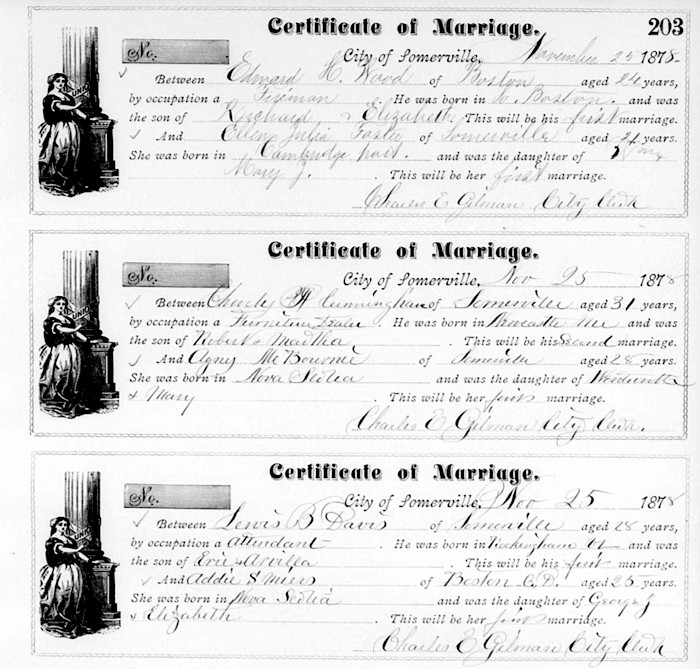 Certificate of Marriage. 203
No. City of Somerville, November 25 1878
Between Edward H. Wood of Boston aged 24 years,
by occupation a Fireman He was born in Boston. and was
the son of Richard & Elizabeth. This will be his first marriage.
And Ellen Julia Foster of Somerville aged 21 years.
She was born in Cambridge port. and was the daughter of
Mary J. This will be her first marriage.
Charles E Gilman City Clerk
Certificate of Marriage.
No. City of Somerville, Nov 25 1878
Between Charles Cunningham of Somerville aged 31 years,
by occupation a Furniture Dealer. He was born in Me and was
the son of Robert & Martha. This will be his Second marriage.
And Agnes McBournie of Somerville aged 28 years.
She was born in Nova Scotia and was the daughter of
& Mary This will be her first marriage.
Charles E Gilman City Clerk.
Certificate of Marriage.
No. City of Somerville, Nov 25 1878
Between Lewis B Davis of Somerville aged 28 years,
by occupation a Attendant. He was born in Rockingham Vt and was
the son of Eric & Arvilla This will be his first marriage.
And Addie S Miers of Boston aged 25 years.
She was born in Nova Scotia and was the daughter of George J
& Elizabeth This will be her first marriage.
Charles E Gilman City Clerk